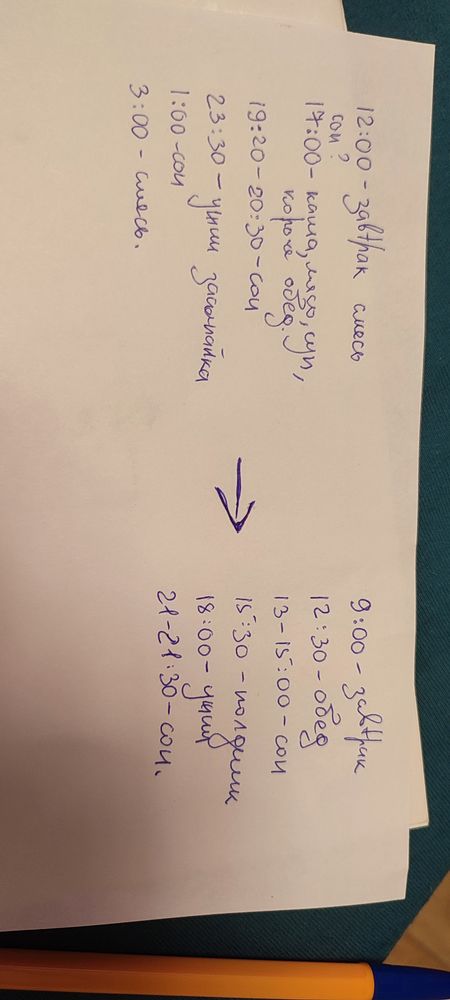 12:00 - завтрак смесь
сон?
17:00 - каша, мясо, суп,
короче обед.
19:20-20:30-сон
23:30 - ужин засыпайка
1:00-сон
3:00 - смесь.
→
9:00 - завтрак
12:30-обед
13-15:00-сон
15:30-полдник
18:00-ужин
21-21:30-сон.